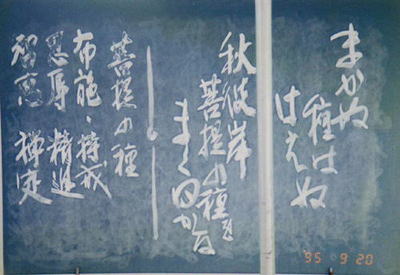 まかぬ
種は
はえぬ
秋彼岸
菩提の種を
まく日かな
菩提の種
布施・持戒
忍辱 精進
智恵 禅定
95 9 20